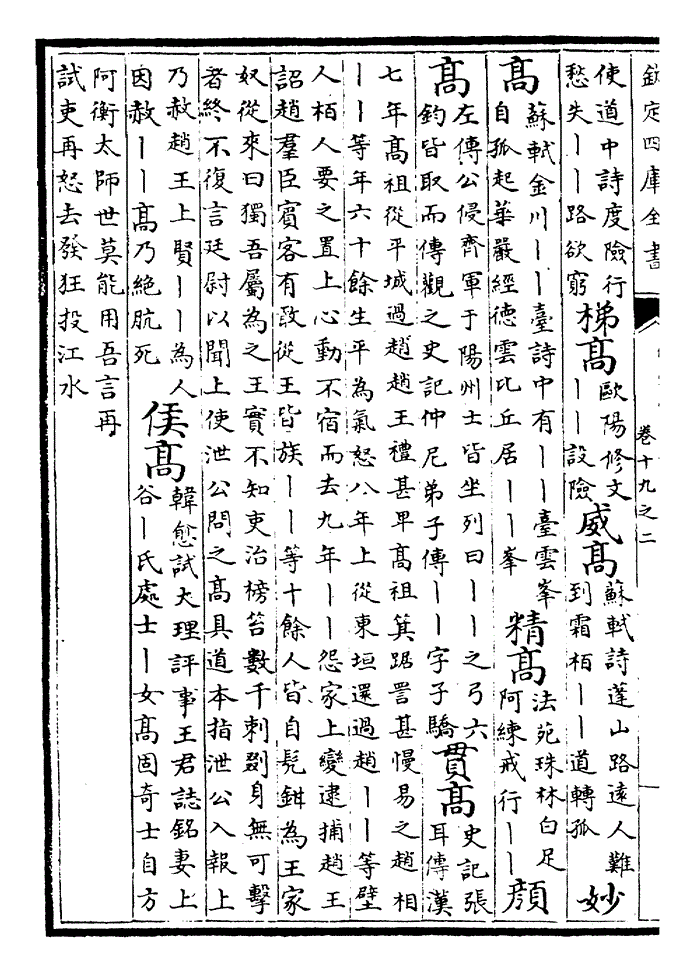 欽定四庫全書
卷十九之二
使道中詩度險行
愁失丨丨路欲窮
梯髙
歐陽修文
丨丨設險
威髙
蘇軾詩蓬山路遠人難
到霜柏丨丨道轉孤
妙
髙
蘇軾金川丨丨臺詩中有丨丨臺雲峯
自孤起華嚴經德雲比丘居丨丨峯
精髙
法苑珠林白足
阿練戒行丨丨
顔
髙
左傳公侵齊軍于陽州士皆坐列曰丨丨之弓六
鈞皆取而傳觀之史記仲尼弟子傳丨丨字子驕
貫髙
史記張
耳傳漢
七年髙祖從平城過趙趙王禮甚卑髙祖箕踞詈甚慢易之趙相
丨丨等年六十餘生平為氣怒八年上從東垣還過趙丨丨等壁
人栢人要之置上心動不宿而去九年丨丨怨家上變逮捕趙王
詔趙羣臣賓客有敢從王皆族丨丨等十餘人皆自髠鉗為王家
奴從來曰獨吾屬為之王實不知吏治榜笞數千刺剟身無可擊
者終不復言廷尉以聞上使泄公問之髙具道本指泄公入報上
乃赦趙王上賢丨丨為人
因赦丨丨髙乃絶肮死
侯髙
韓愈試大理評事王君誌銘妻上
谷丨氏處士丨女髙固奇士自方
阿衡太師世莫能用吾言再
試吏再怒去發狂投江水